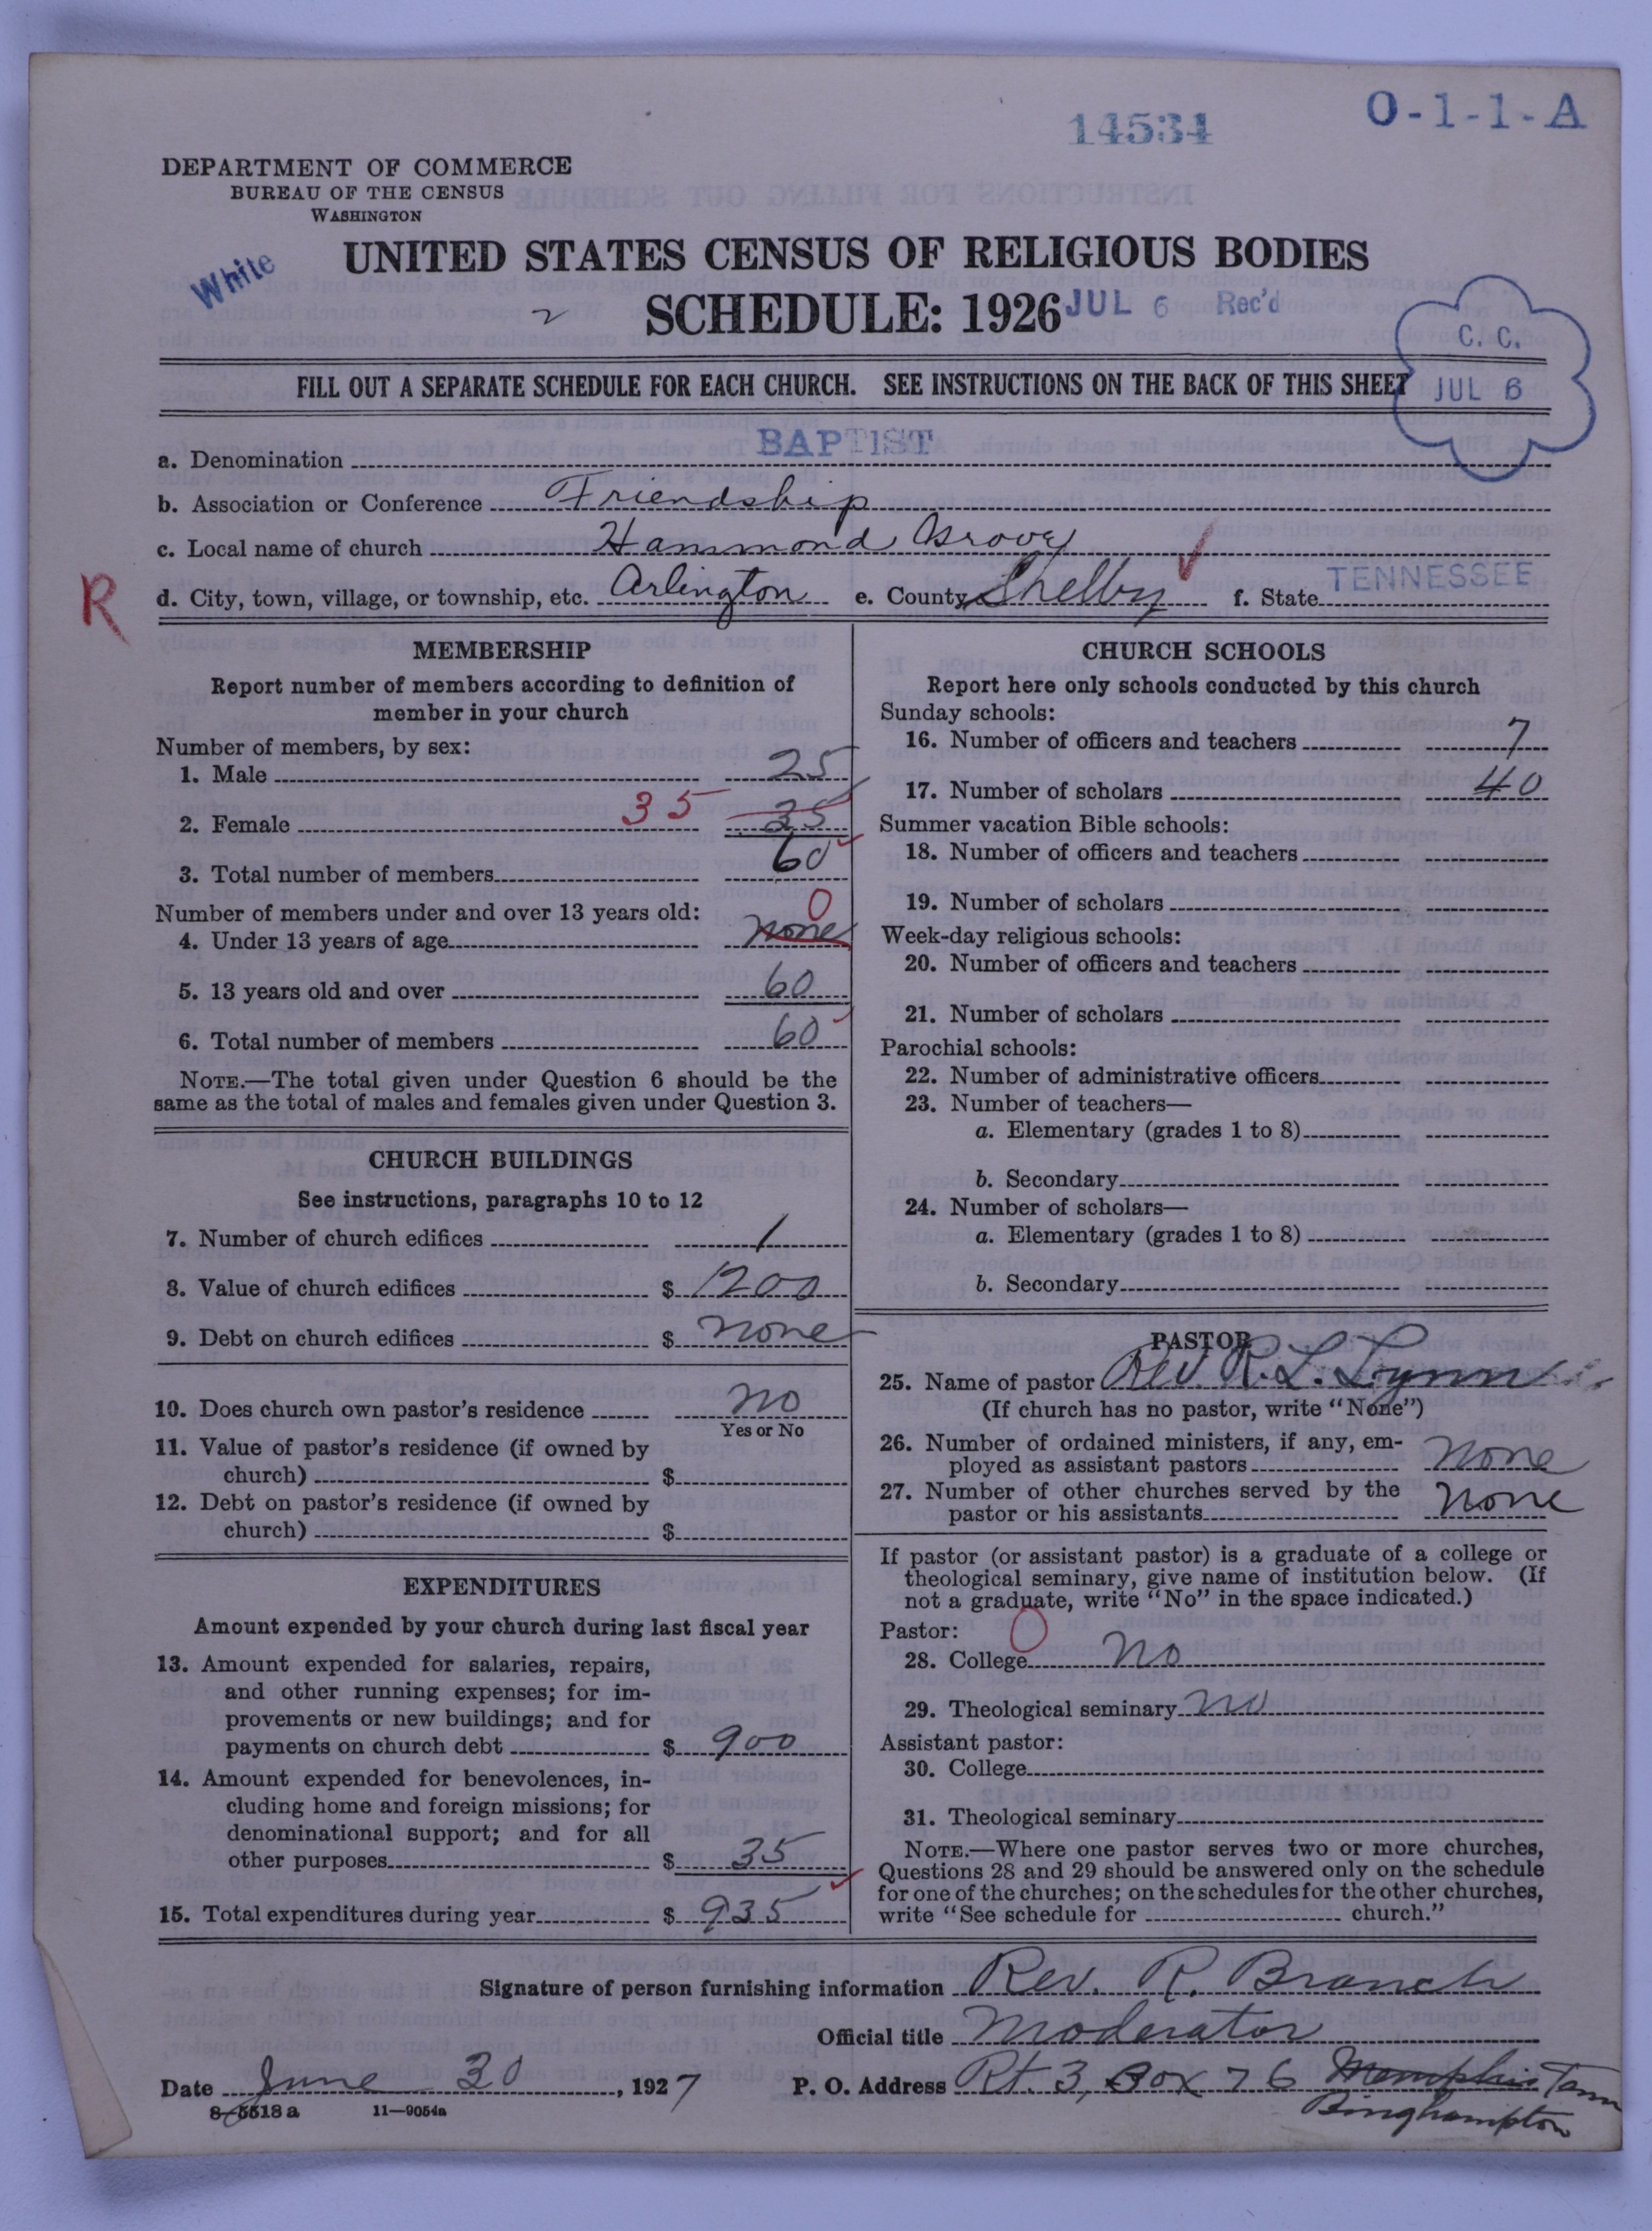 14534
O-1-1-A
DEPARTMENT OF COMMERCE
BUREAU OF THE CENSUS
WASHINGTON
White
UNITED STATES CENSUS OF RELIGIOUS BODIES
SCHEDULE: 1926
JUL 6 Rec'd
C. C.
JUL 6
FILL OUT A SEPARATE SCHEDULE FOR EACH CHURCH. SEE INSTRUCTIONS ON THE BACK OF THIS SHEET
a. Denomination BAPTIST
b. Association or Conference Friendship
c. Local name of church Hammond Grove
R
d. City, town, village, or township, etc. Arlington e. County Shelby f. State TENNESSEE
MEMBERSHIP
Report number of members according to definition of
member in your church
Number of members, by sex:
1. Male 25
2. Female 35 35
3. Total number of members 60
Number of members under and over 13 years old: 0
4. Under 13 years of age none
5. 13 years old and over 60
6. Total number of members 60
NOTE.—The total given under Question 6 should be the
same as the total of males and females given under Question 3.
CHURCH BUILDINGS
See instructions, paragraphs 10 to 12
7. Number of church edifices 1
8. Value of church edifices $ 1200
9. Debt on church edifices $ none
10. Does church own pastor's residence no
Yes or No
11. Value of pastor's residence (if owned by
church) $
12. Debt on pastor's residence (if owned by
church) $
EXPENDITURES
Amount expended by your church during last fiscal year
13. Amount expended for salaries, repairs,
and other running expenses; for im-
provements or new buildings; and for
payments on church debt $ 900
14. Amount expended for benevolences, in-
cluding home and foreign missions; for
denominational support; and for all
other purposes $ 35
15. Total expenditures during year $ 935
CHURCH SCHOOLS
Report here only schools conducted by this church
Sunday schools:
16. Number of officers and teachers 7
17. Number of scholars 40
Summer vacation Bible schools:
18. Number of officers and teachers
19. Number of scholars
Week-day religious schools:
20. Number of officers and teachers
21. Number of scholars
Parochial schools:
22. Number of administrative officers
23. Number of teachers—
a. Elementary (grades 1 to 8)
b. Secondary
24. Number of scholars—
a. Elementary (grades 1 to 8)
b. Secondary
PASTOR
25. Name of pastor Rev. R. L. Lynn
(If church has no pastor, write "None")
26. Number of ordained ministers, if any, em-
ployed as assistant pastors none
27. Number of other churches served by the
pastor or his assistants none
If pastor (or assistant pastor) is a graduate of a college or
theological seminary, give name of institution below. (If
not a graduate, write "No" in the space indicated.)
Pastor: 0
28. College no
29. Theological seminary no
Assistant pastor:
30. College
31. Theological seminary
NOTE.—Where one pastor serves two or more churches,
Questions 28 and 29 should be answered only on the schedule
for one of the churches; on the schedules for the other churches,
write "See schedule for church."
Signature of person furnishing information Rev. R. Branch
Official title Moderator
Date June 30, 1927 P. O. Address Rt. 3, Box 76 Memphis Tenn
Binghampton
8-5518 a 11—9054a